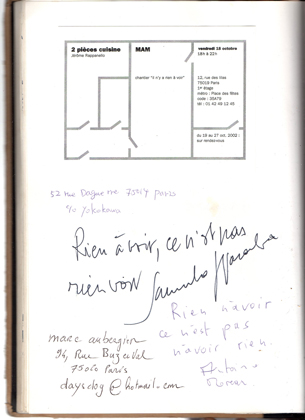 2 pièces cuisine
Jérôme Rappanello
MAM
chantier "il n'y a rien à voir"
vendredi 18 octobre
18h à 22h
12, rue des lilas
75019 Paris
1er étage
métro : Place des fêtes
code : 35A79
tél : 01 42 49 12 45
du 19 au 27 oct. 2002 :
sur rendez-vous
52 rue Daguerre 75014 paris
c/o yokokawa
Rien à voir, ce n'est pas
rien voir
Rien n'avoir
ce n'est pas
n'avoir rien.
marc
94, Rue Buzenval
75020 Paris
daysdog@hotmail.com